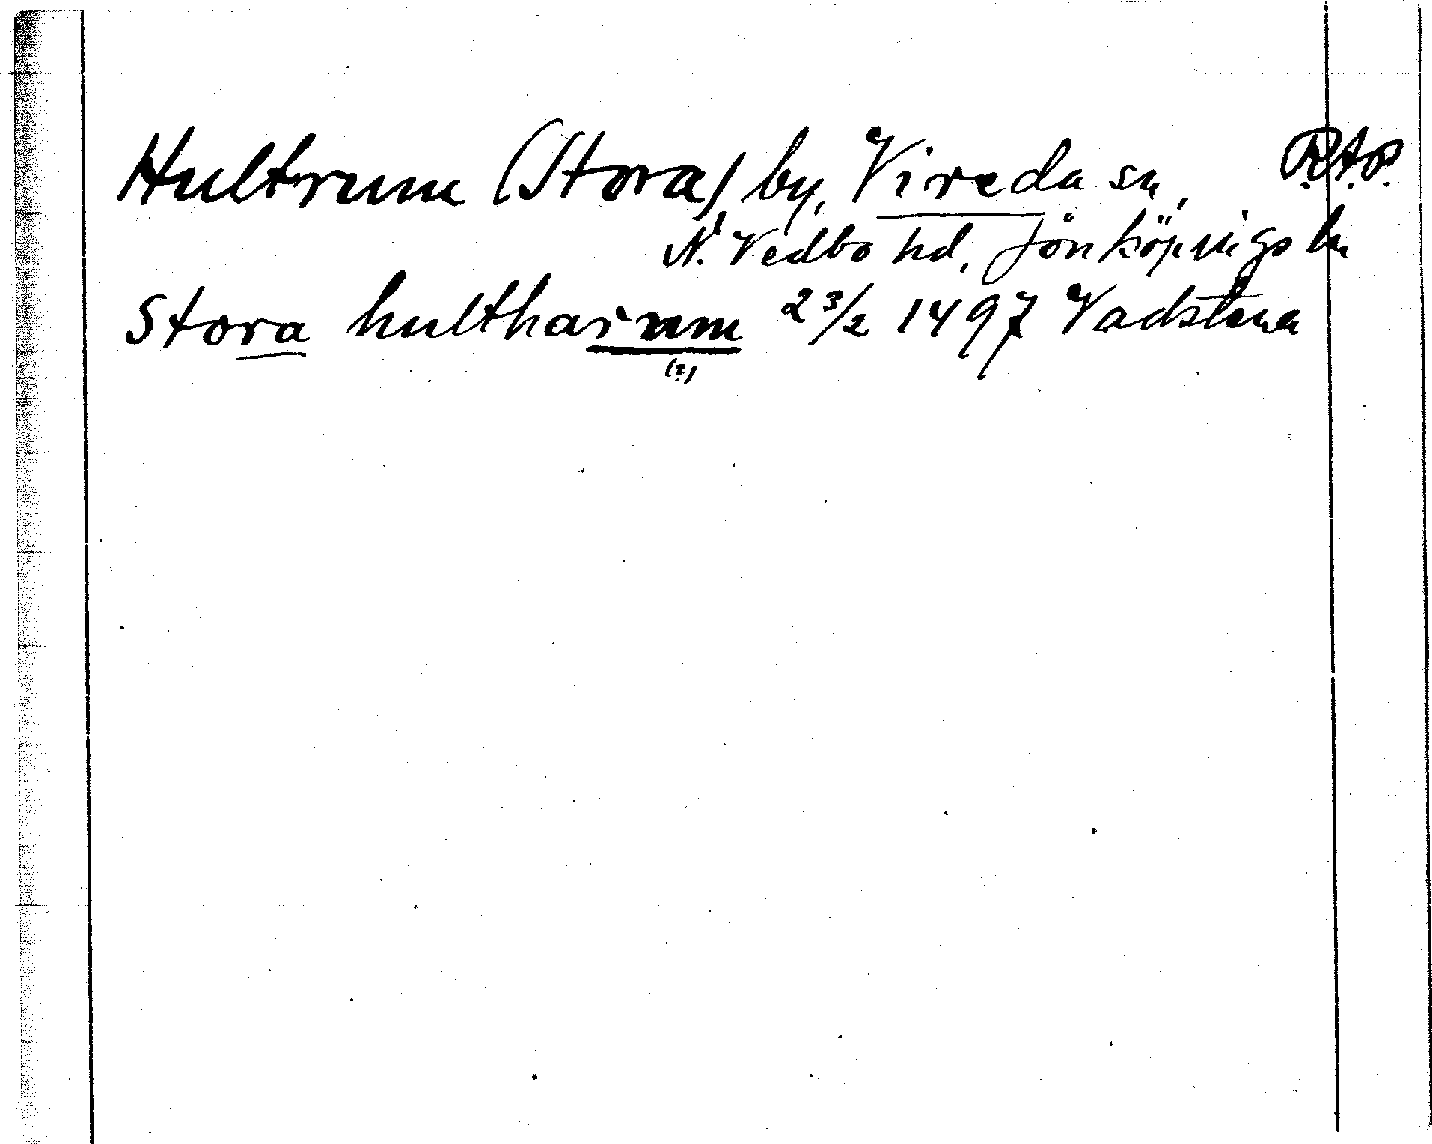 Hultrum (Stora) by, Vireda sn, R.A.P.
N. Vedbo hd, Jönköpings ln
Stora hultharrum 23/2 1497 Vadstena
(?)